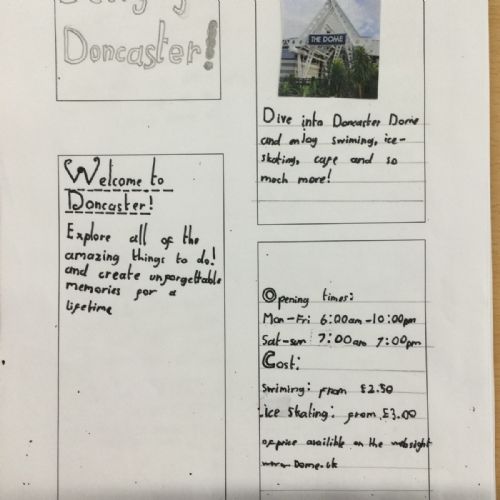 Doncaster!
Welcome to
Doncaster!
Explore all of the
amazing things to do!
and create unforgettable
memories for a
lifetime
THE DOME
Dive into Doncaster Dome
and enjoy swiming, ice-
skating, cafe and so
much more!
Opening times:
Mon-Fri 6:00am-10:00pm
Sat-sun 7:00am 7:00pm
Cost:
swiming: from £2.50
ice skating: from £3.00
price availible on the websight
Dome.uk